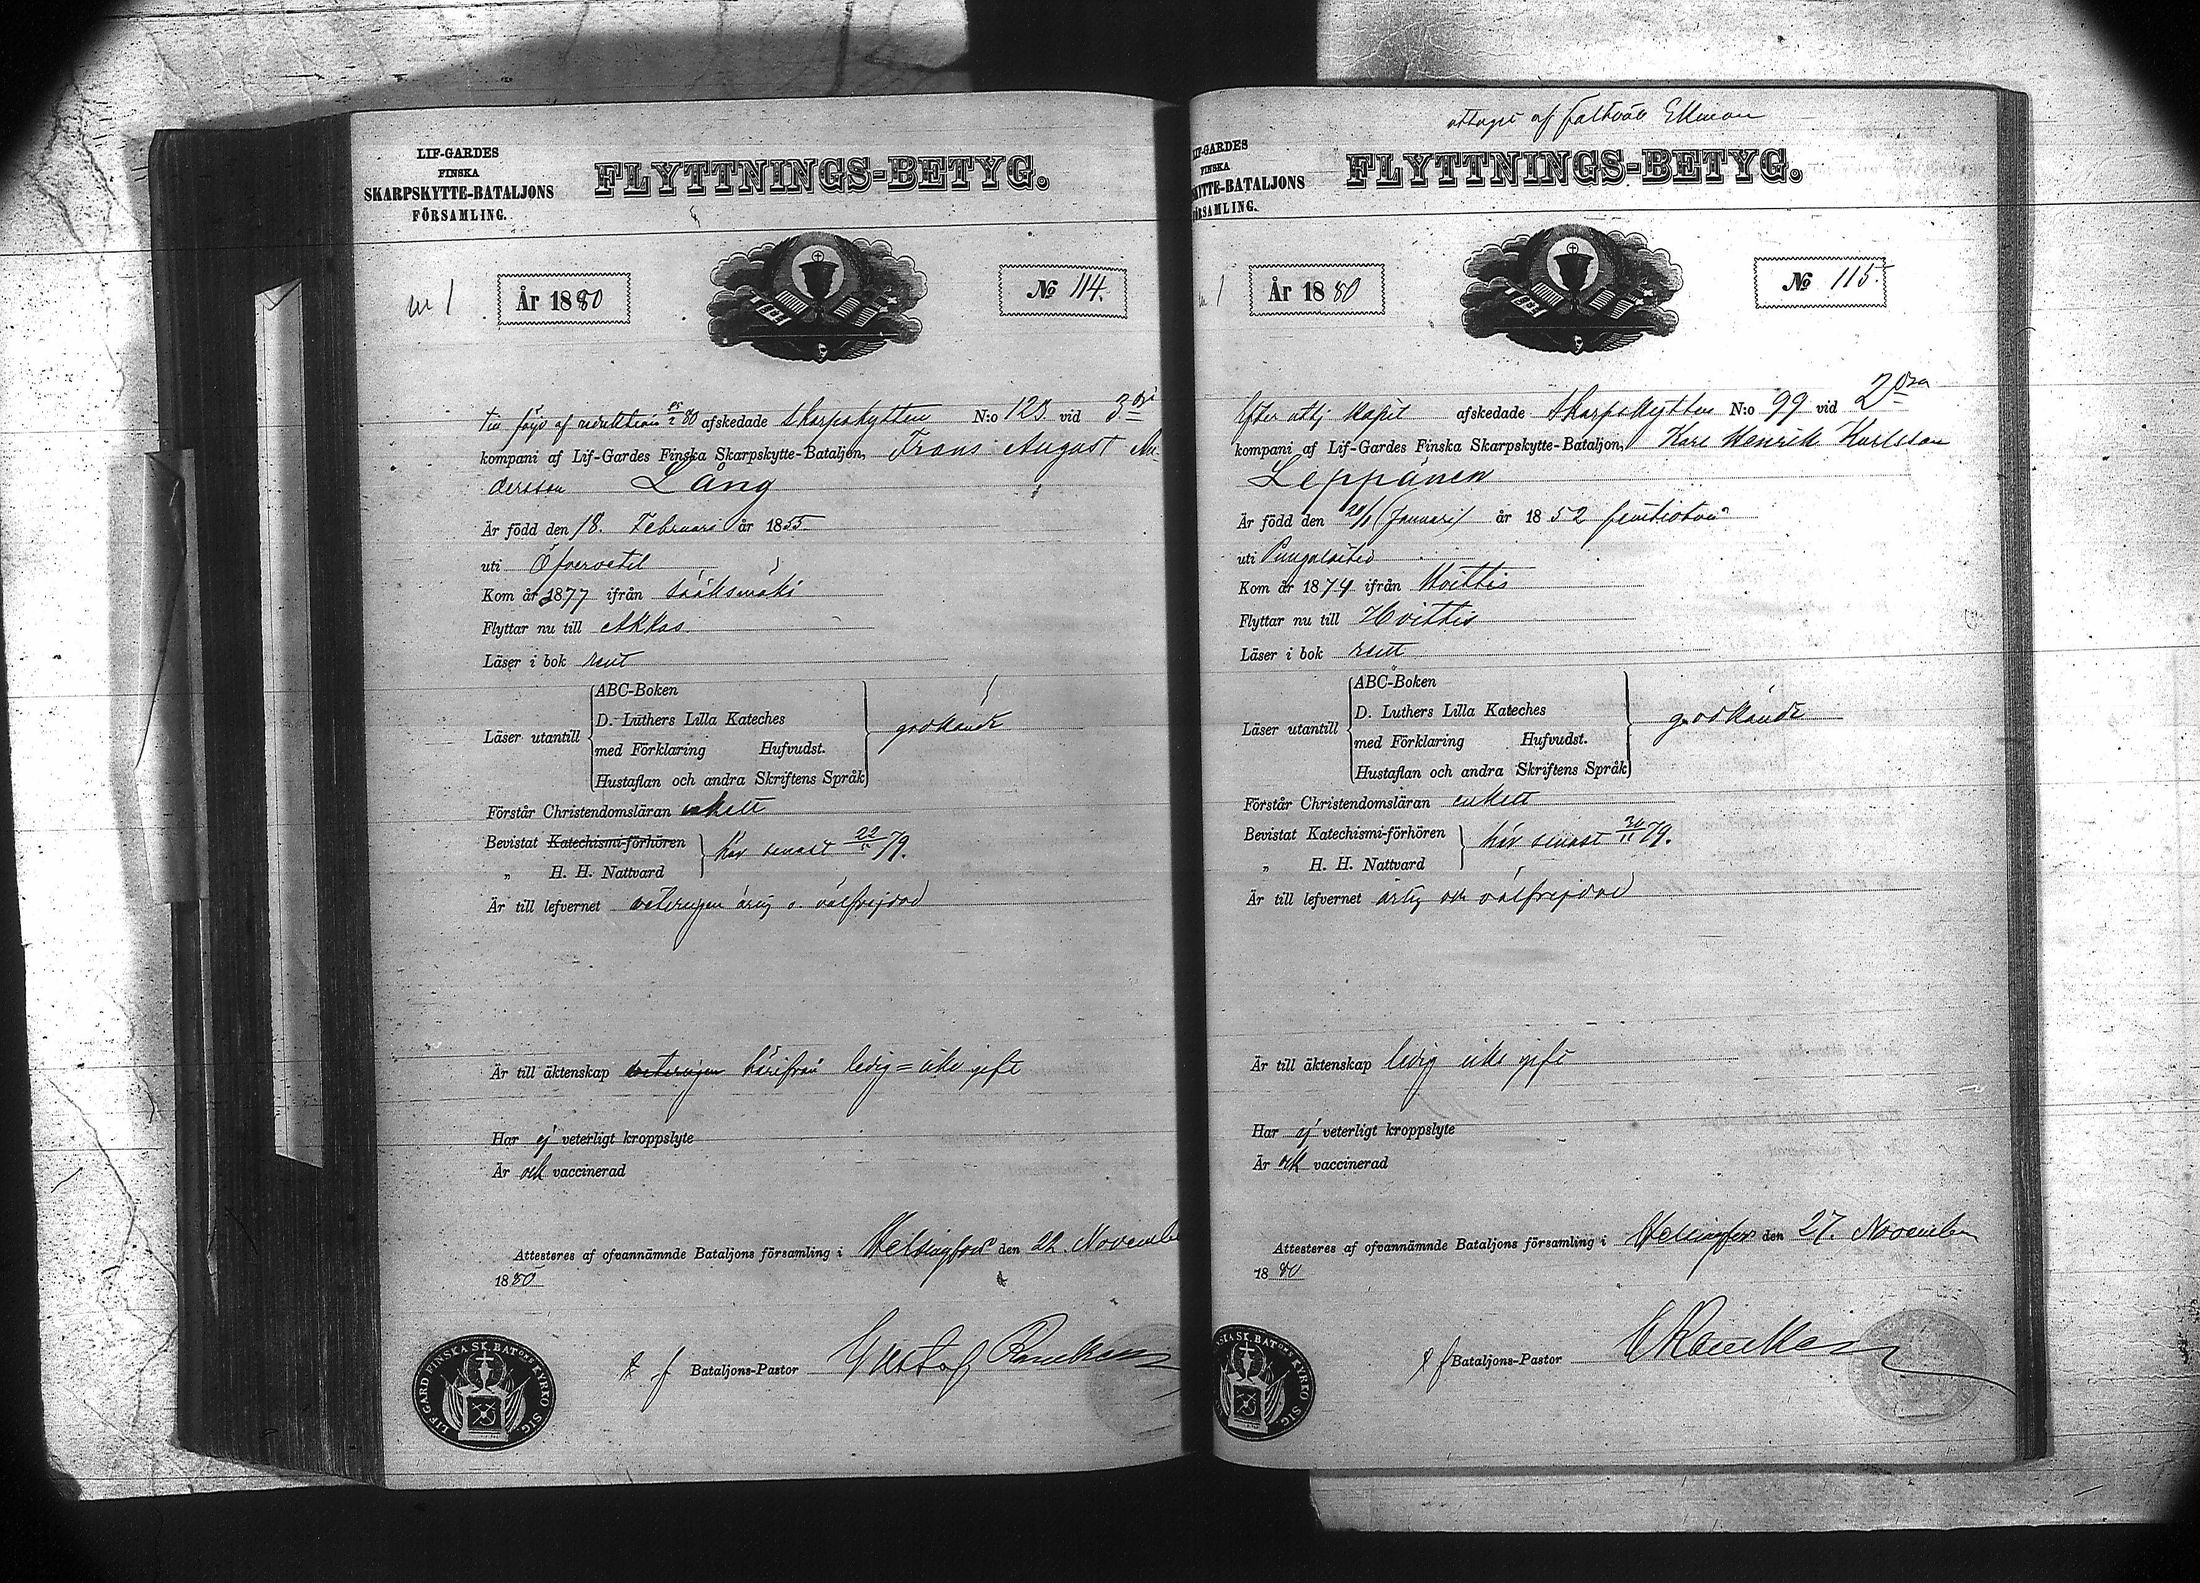 LIF-GARDES
FINSKA
SKARPSKYTTE-BATALJONS
FÖRSAMLING.
FLYTTNINGS-BETYG.
År 1880
No 114.
afskedade Skarpskytten N:o 123 vid 3dje
kompani af Lif-Gardes Finska Skarpskytte-Bataljon, Frans August An-
dersson Lång
Är född den 18. Februari år 1855
uti Öfvervetil
Kom år 1877 ifrån Sääksmäki
Flyttar nu till Akkas
Läser i bok rent
Läser utantill
ABC-Boken
D. Luthers Lilla Kateches
med Förklaring Hufvudst.
Hustaflan och andra Skriftens Språk
godkändt
Förstår Christendomsläran enkelt
Bevistat Katechismi-förhören
„ H. H. Nattvard
här senast 22/11 79.
Är till lefvernet veterligen ärlig o. välfrejdad
Är till äktenskap veterligen härifrån ledig = icke gift
Har ej veterligt kroppslyte
Är ock vaccinerad
Attesteres af ofvannämnde Bataljons församling i Helsingfors den 22 November
1880
t f Bataljons-Pastor Gustaf
LIF GARD FINSKA SK. BATONS KYRKO SIG.
LIF-GARDES
FINSKA
SKYTTE-BATALJONS
FÖRSAMLING.
FLYTTNINGS-BETYG.
År 1880
No 115.
Efter uttj. kapit afskedade Skarpskytten N:o 99 vid 2dra
kompani af Lif-Gardes Finska Skarpskytte-Bataljon, Karl Henrik Karlsson
Leppänen
Är född den 20/1 (Januari) år 1852 femtiotvå
uti Pungalaitio
Kom år 1874 ifrån Hvittis
Flyttar nu till Hvittis
Läser i bok rent
Läser utantill
ABC-Boken
D. Luthers Lilla Kateches
med Förklaring Hufvudst.
Hustaflan och andra Skriftens Språk
godkändt
Förstår Christendomsläran enkelt
Bevistat Katechismi-förhören
„ H. H. Nattvard
här senast 30/11 79.
Är till lefvernet ärlig och välfrejdad
Är till äktenskap ledig icke gift
Har ej veterligt kroppslyte
Är ock vaccinerad
Attesteres af ofvannämnde Bataljons församling i Helsingfors den 27. November
1880
t f Bataljons-Pastor
SKA SK. BATONS KYRKO SIG.